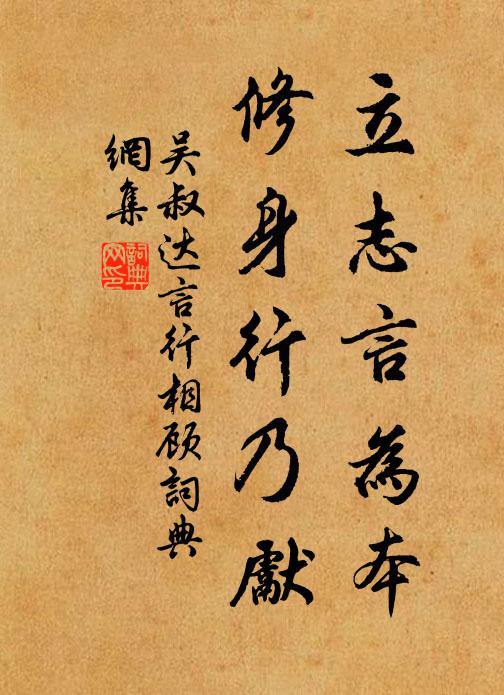 立志言為本
修身行乃獻
吴叔达言行相顾詞典
網集
詞典
网印